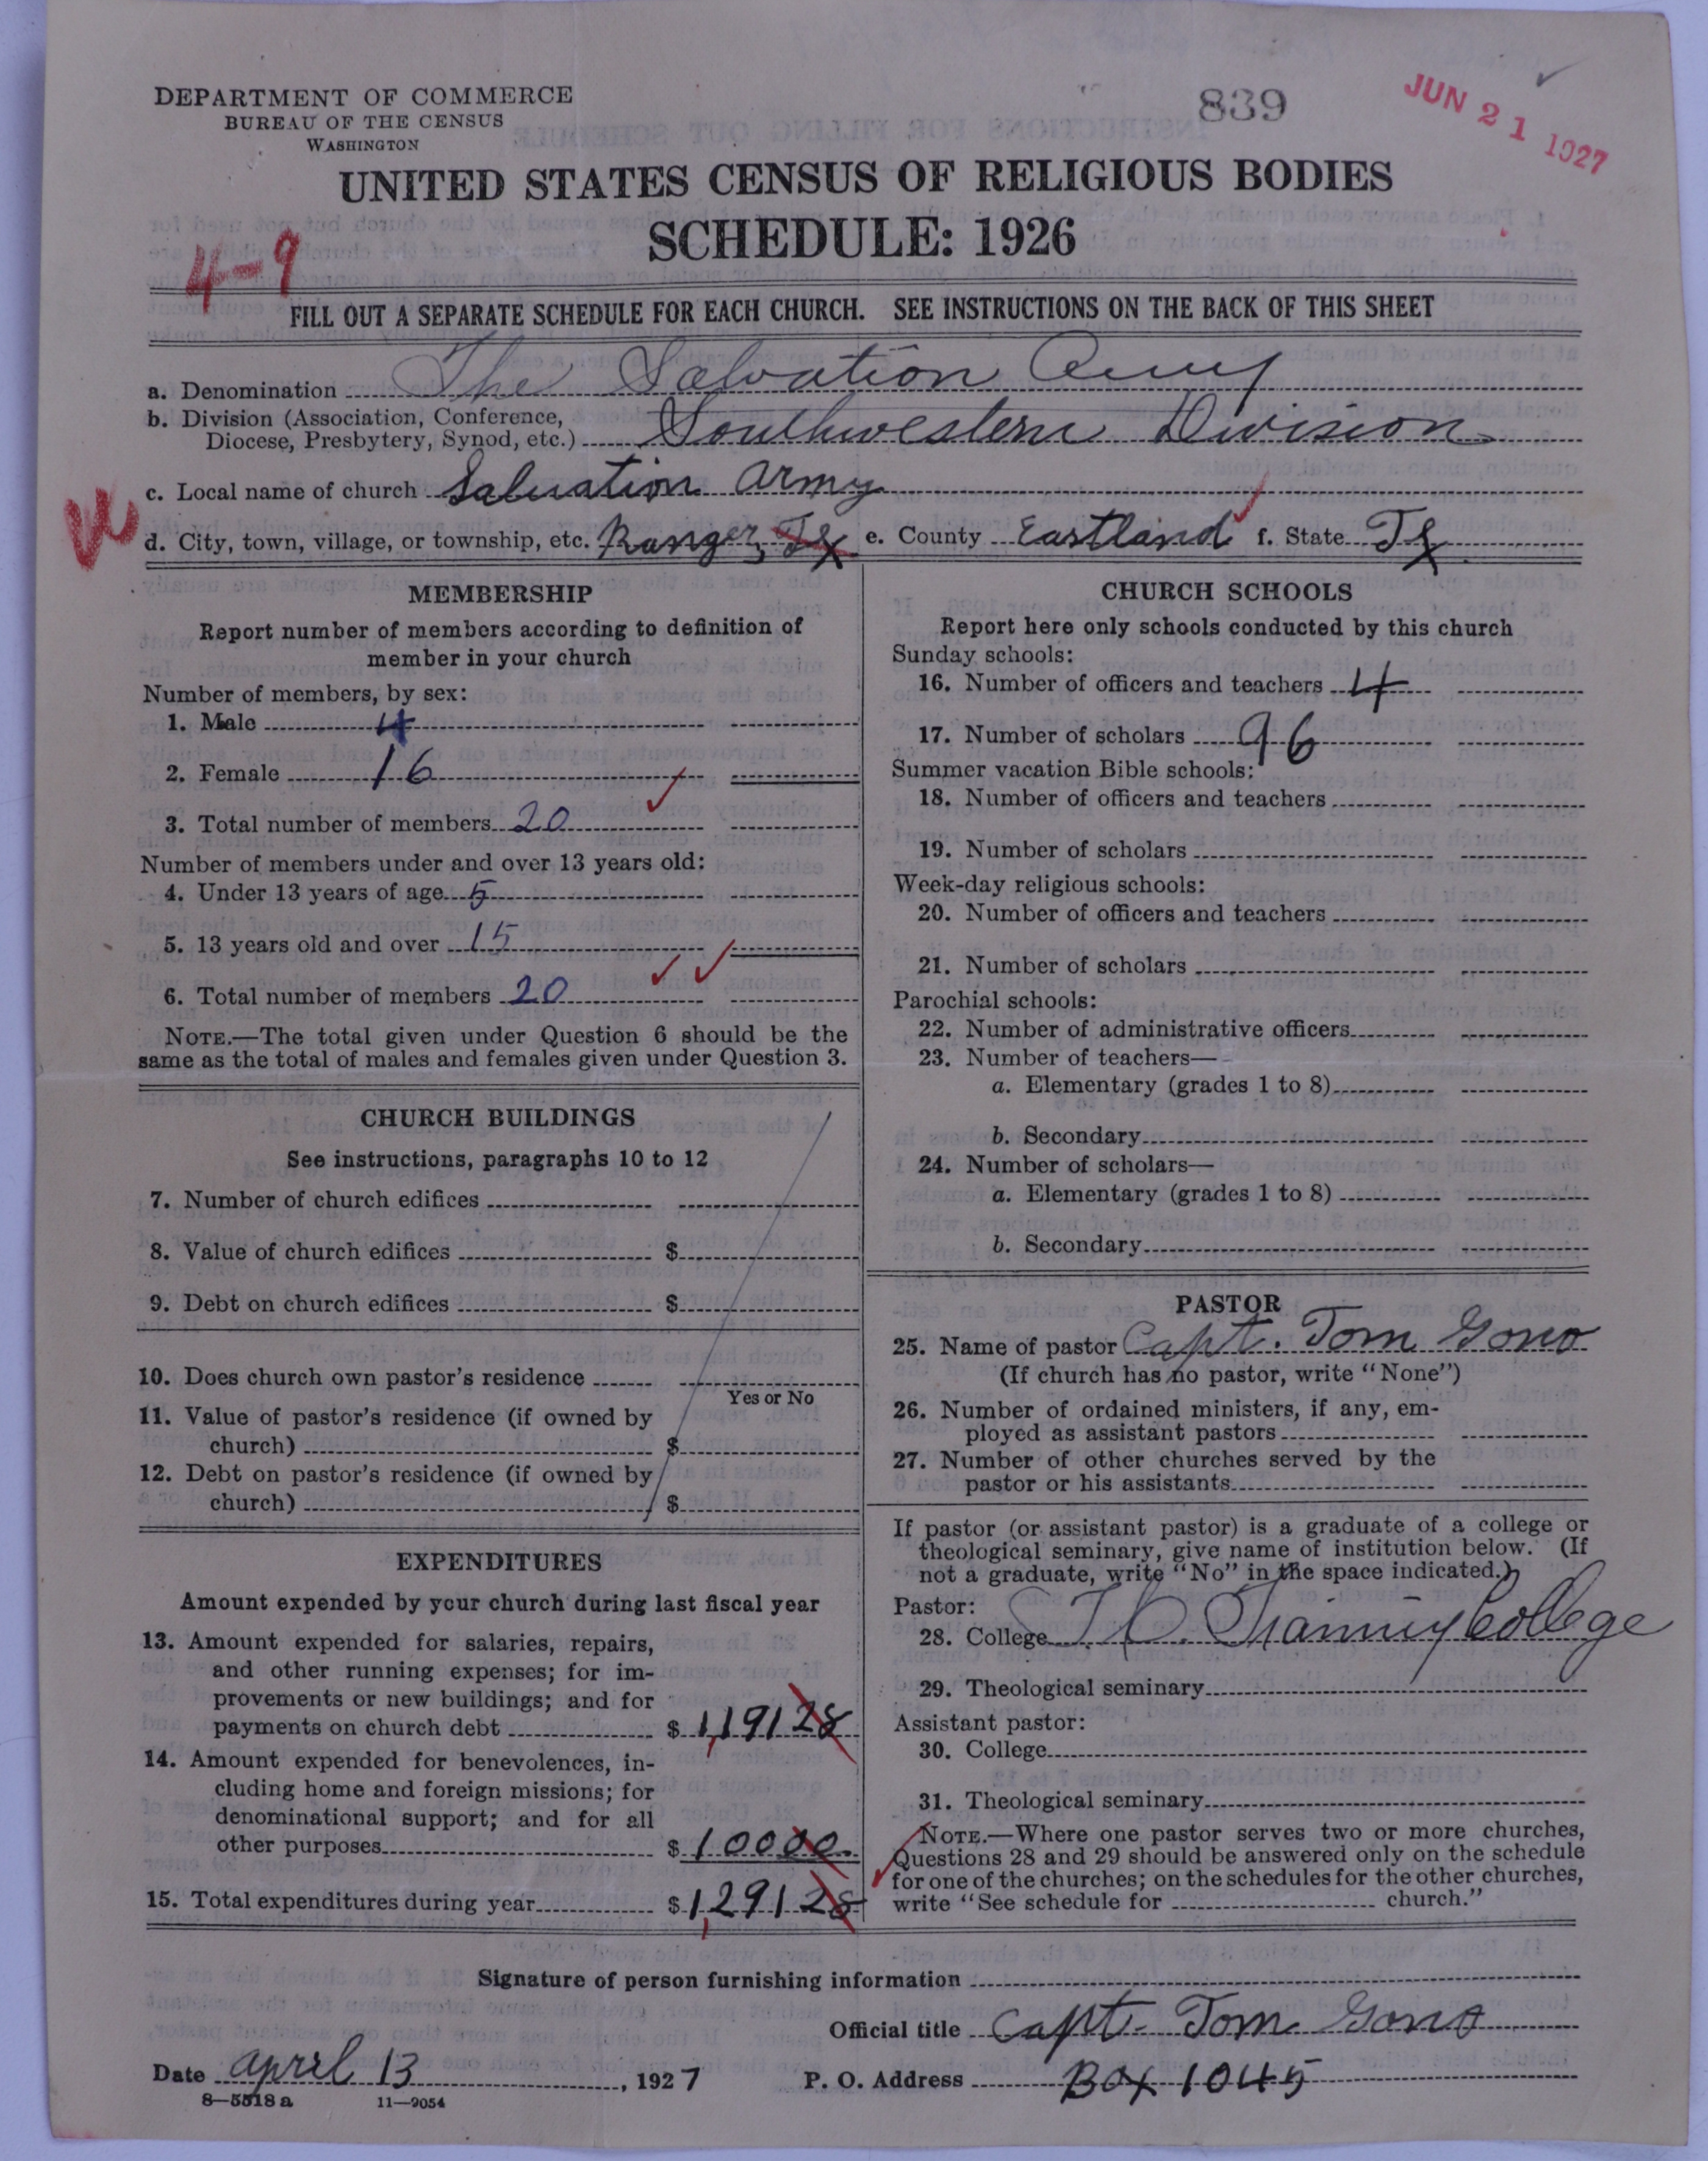 DEPARTMENT OF COMMERCE
BUREAU OF THE CENSUS
WASHINGTON
839
JUN 21 1927
UNITED STATES CENSUS OF RELIGIOUS BODIES
SCHEDULE: 1926
4-9
FILL OUT A SEPARATE SCHEDULE FOR EACH CHURCH. SEE INSTRUCTIONS ON THE BACK OF THIS SHEET
a. Denomination The Salvation Army
b. Division (Association, Conference,
Diocese, Presbytery, Synod, etc.) Southwestern Division
c. Local name of church Salvation Army
d. City, town, village, or township, etc. Ranger, Tx e. County Eastland f. State Tx
MEMBERSHIP
Report number of members according to definition of
member in your church
Number of members, by sex:
1. Male 4
2. Female 16
3. Total number of members 20
Number of members under and over 13 years old:
4. Under 13 years of age 5
5. 13 years old and over 15
6. Total number of members 20
NOTE.—The total given under Question 6 should be the
same as the total of males and females given under Question 3.
CHURCH BUILDINGS
See instructions, paragraphs 10 to 12
7. Number of church edifices
8. Value of church edifices $
9. Debt on church edifices $
10. Does church own pastor's residence
Yes or No
11. Value of pastor's residence (if owned by
church) $
12. Debt on pastor's residence (if owned by
church) $
EXPENDITURES
Amount expended by your church during last fiscal year
13. Amount expended for salaries, repairs,
and other running expenses; for im-
provements or new buildings; and for
payments on church debt $ 1,191 28
14. Amount expended for benevolences, in-
cluding home and foreign missions; for
denominational support; and for all
other purposes $ 100 00
15. Total expenditures during year $ 1,291 28
CHURCH SCHOOLS
Report here only schools conducted by this church
Sunday schools:
16. Number of officers and teachers 4
17. Number of scholars 96
Summer vacation Bible schools:
18. Number of officers and teachers
19. Number of scholars
Week-day religious schools:
20. Number of officers and teachers
21. Number of scholars
Parochial schools:
22. Number of administrative officers
23. Number of teachers—
a. Elementary (grades 1 to 8)
b. Secondary
24. Number of scholars—
a. Elementary (grades 1 to 8)
b. Secondary
PASTOR
25. Name of pastor Capt. Tom
(If church has no pastor, write "None")
26. Number of ordained ministers, if any, em-
ployed as assistant pastors
27. Number of other churches served by the
pastor or his assistants
If pastor (or assistant pastor) is a graduate of a college or
theological seminary, give name of institution below. (If
not a graduate, write "No" in the space indicated.)
Pastor:
28. College Training College
29. Theological seminary
Assistant pastor:
30. College
31. Theological seminary
NOTE.—Where one pastor serves two or more churches,
Questions 28 and 29 should be answered only on the schedule
for one of the churches; on the schedules for the other churches,
write "See schedule for church."
Signature of person furnishing information
Official title Capt. Tom
Date April 13, 1927 P. O. Address Box 1045
8—5518 a 11—9054